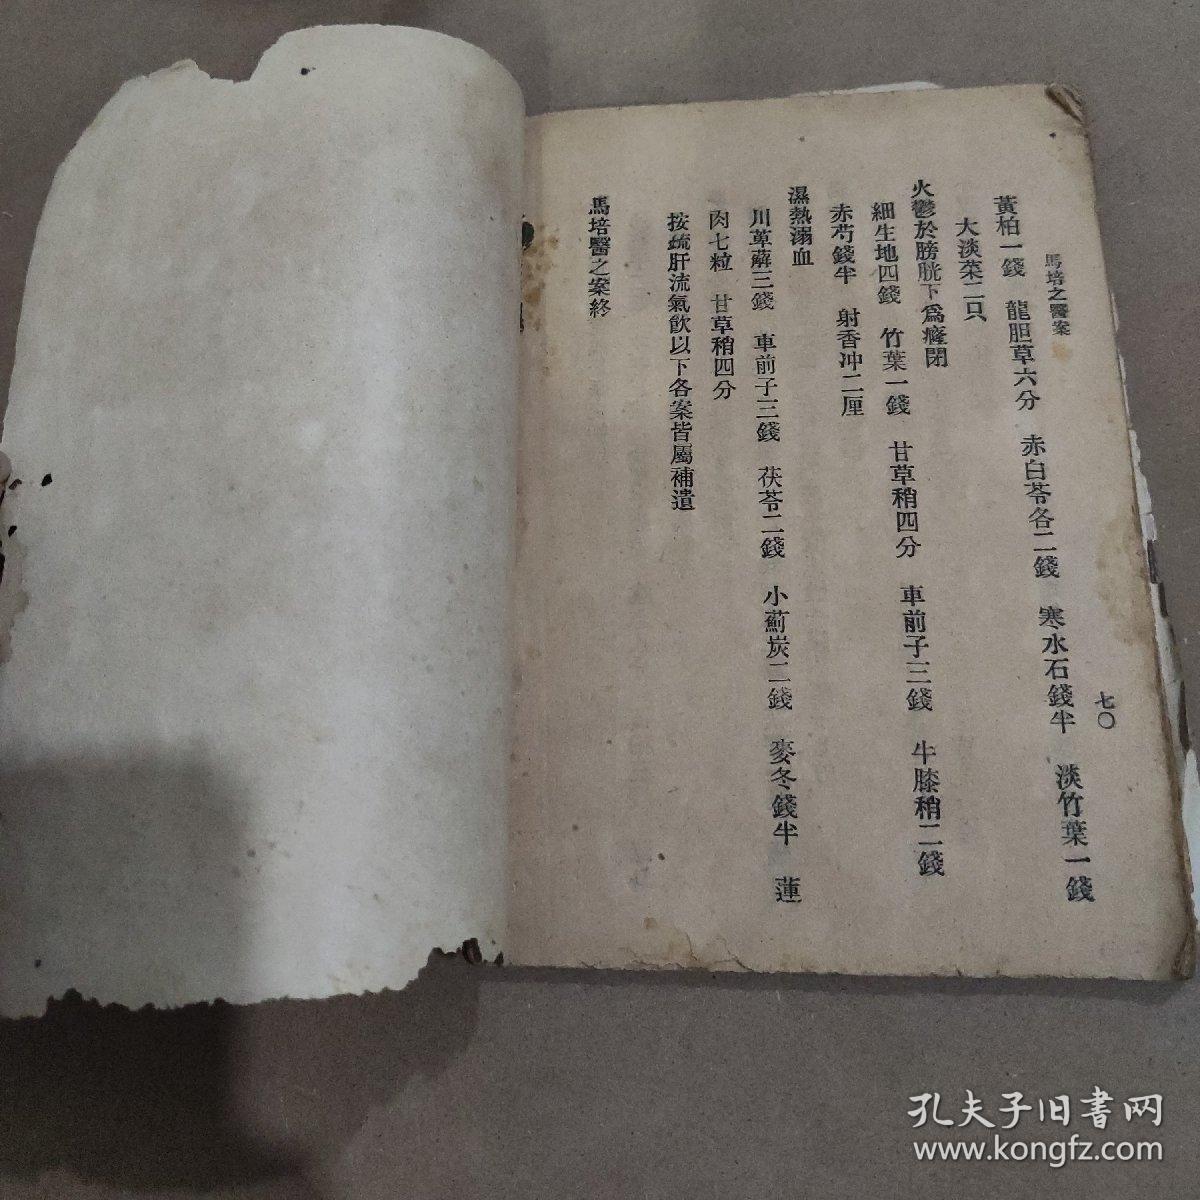 馬培之醫案
七〇
黃柏一錢　龍胆草六分　赤白苓各二錢　寒水石錢半　淡竹葉一錢
大淡菜二只
火鬱於膀胱下爲癃閉
細生地四錢　竹葉一錢　甘草稍四分　車前子三錢　牛膝稍二錢
赤芍錢半　射香冲二厘
濕熱溺血
川萆薢三錢　車前子三錢　茯苓二錢　小薊炭二錢　麥冬錢半　蓮
肉七粒　甘草稍四分
按疏肝流氣飲以下各案皆屬補遺
馬培醫之案終
孔夫子旧书网
www.kongfz.com